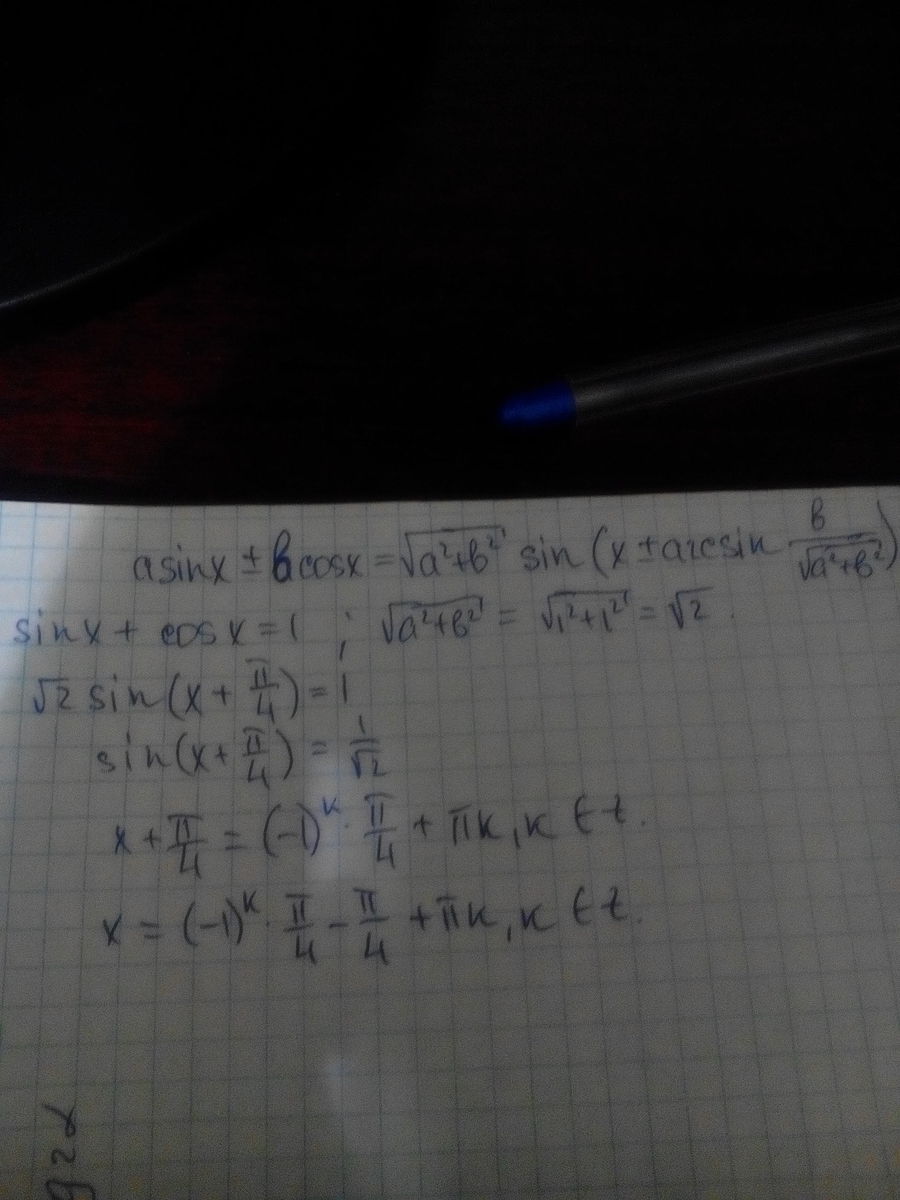 asinx ± bcosx = √(a²+b²) sin (x ± arcsin b/√(a²+b²))
sinx + cosx = 1 ; √(a²+b²) = √(1²+1²) = √2.
√2 sin(x + π/4) = 1
sin(x + π/4) = 1/√2
x + π/4 = (-1)^k · π/4 + πk, k ∈ Z.
x = (-1)^k · π/4 - π/4 + πk, k ∈ Z.